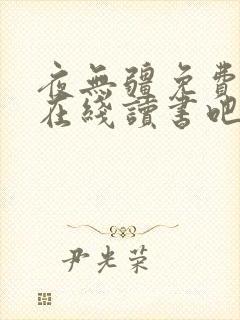 夜無疆免費
在綫讀書吧
尹光荣